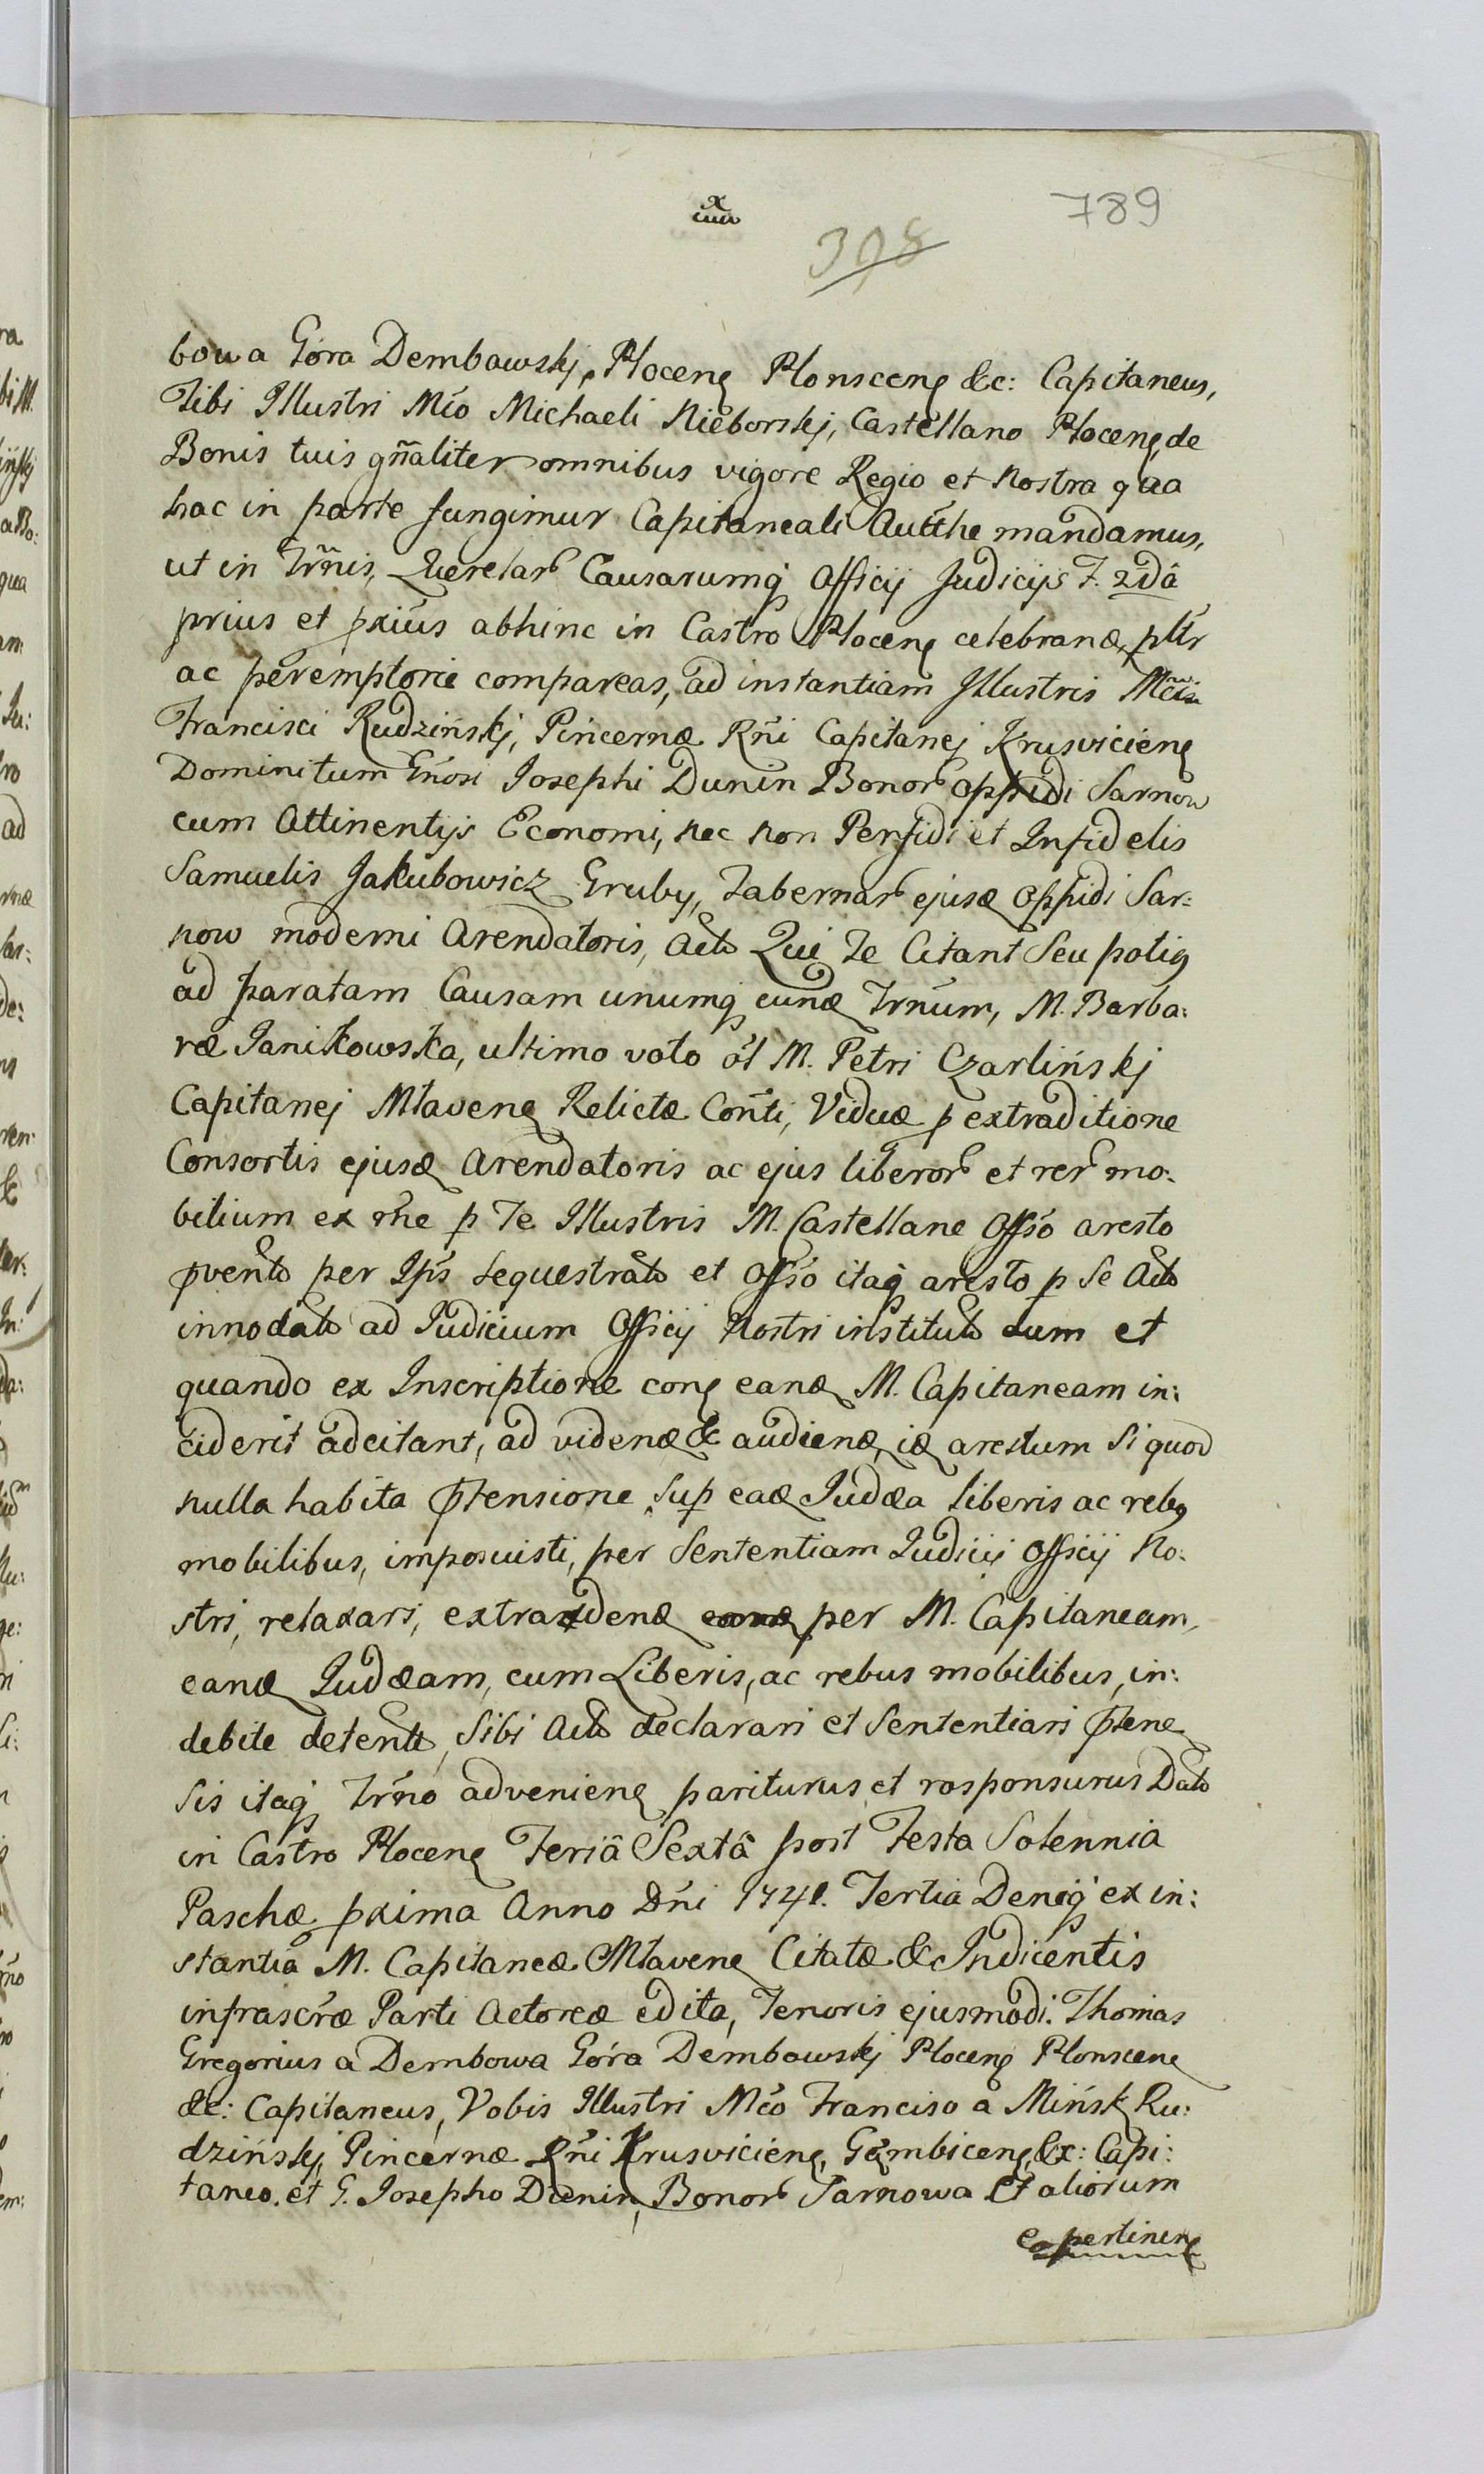 789
398
bowa Góra Dembowskj, Plocenȩ Plonscenȩ &c: Capitaneus,
Tibi Illustri Mco Michaeli Nieborskj, Castellano Plocenȩ, de
Bonis tuis gñaliter omnibus vigore Regio et Nostra qua
hac in parte fungimur Capitaneali Autthe mandamus,
ut in Trñis, Querelarꝰ Causarumq Officij Judicijs F. 2dâ
prius et pxius abhinc in Castro Plocenȩ celebranæ, pltr
ac peremptorie compareas, ad instantiam Illustris Mci
Francisci Rudzińskj, Pincernæ Rñi Capitanej Krusviciene
Dominitum Gñosi Josephi Dunin Bonorꝰ oppidi Sarnow
cum Attinentijs Economi, nec non Perfidi et Infidelis
Samuelis Jakubowicz Gruby, Tabernarꝰ ejusæ Oppidi Sar:
now moderni Arendatoris, Actꝰ Qui Te Citant Seu potiꝰ
ad paratam Causam unumq eunæ Trnum, M. Barba:
ræ Janikowska, ultimo voto ól M. Petri Czarlińskj
Capitanej Mlavenȩ Relictæ Conti, Viduæ p extraditione
Consortis ejusæ Arendatoris ac ejus liberorꝰ et rerꝰ mo:
bilium ex rñe p Te Illustris M. Castellane Offso aresto
pventꝰ per Ips sequestratꝰ et Offso itaq aresto p Se Actꝰ
innodatꝰ ad Judicium Officij Nostri institutꝰ dum et
quando ex Inscriptione conȩ eanæ M. Capitaneam in:
ciderit adcitant, ad videnæ & audienæ, iæ arestum Si quod
nulla habita ptensione sup eaæ Judæa liberis ac rebꝰ
mobilibus, imposuisti, per Sententiam Judicij Officij No:
stri, relaxari, extradenæ per M. Capitaneam,
eanæ Judæam, cum Liberis, ac rebus mobilibus, in:
debite detentꝰ, Sibi Actꝰ declarari et Sententiari ptenȩ
Sis itaq Trno advenienȩ pariturus et rosponsurus Datꝰ
in Castro Plocenȩ Feriâ Sextâ post Festa Solennia
Paschæ pxima Anno Dñi 1741. Tertia Deniq ex in:
stantia M. Capitaneæ Mlavenȩ Citatæ & Indicentis
infrascræ Parti Actoreæ edita, Tenoris ejusmodi. Thomas
Gregorius a Dembowa Góra Dembowskj Plocenȩ Plonscenȩ
&c: Capitaneus, Vobis Illustri Mco Franciso a Mińsk Ru:
dzińskj, Pincernæ Rñi Krusvicienȩ, Gembicenȩ, &c: Capi:
taneo. et G. Josepho Dunin, Bonorꝰ Sarnowa Et aliorum
eo pertinenȩ